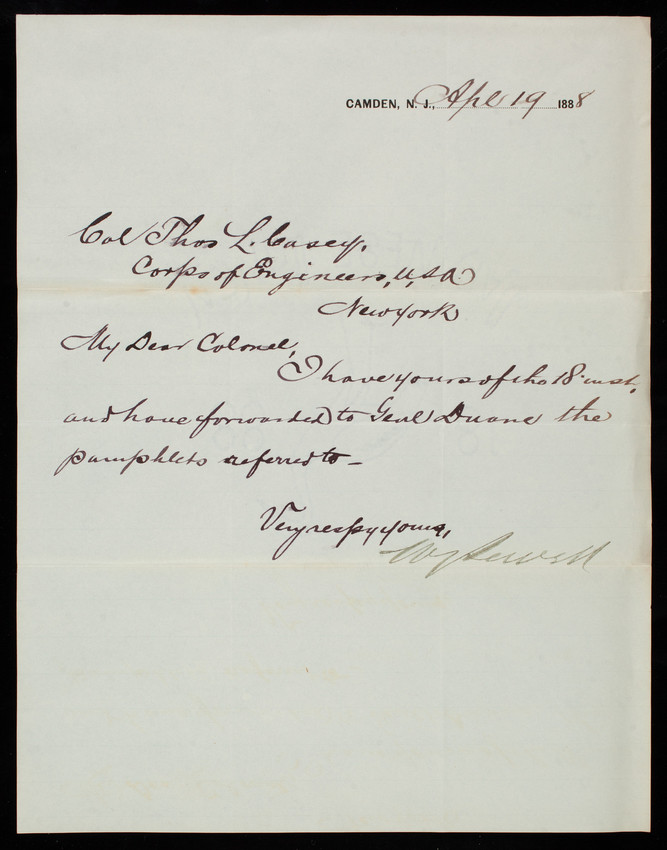 CAMDEN, N. J., Apl 19 1888
Col Thos L. Casey,
Corps of Engineers, U,S.A
New York
My Dear Colonel,
I have yours of the 18 inst,
and have forwarded to Genl Duane the
pamphlets referred to –
Very respy yours,
W J Sewell